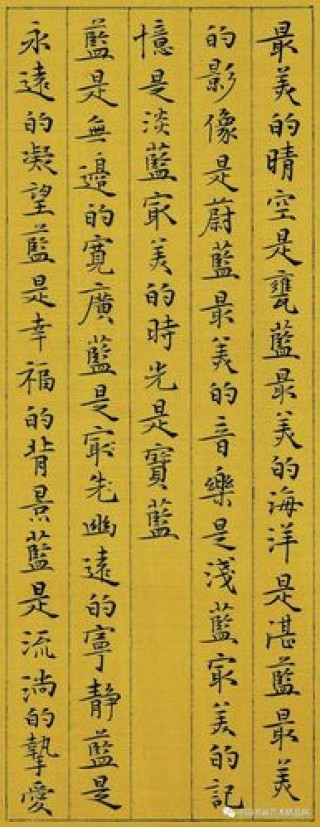 最美的晴空是甕藍最美的海洋是湛藍最美
的影像是蔚藍最美的音樂是淺藍㝡美的記
憶是淡藍㝡美的時光是寶藍
藍是無邊的寬廣藍是㝡先幽遠的寧靜藍是
永遠的凝望藍是幸福的背景藍是流淌的摯愛